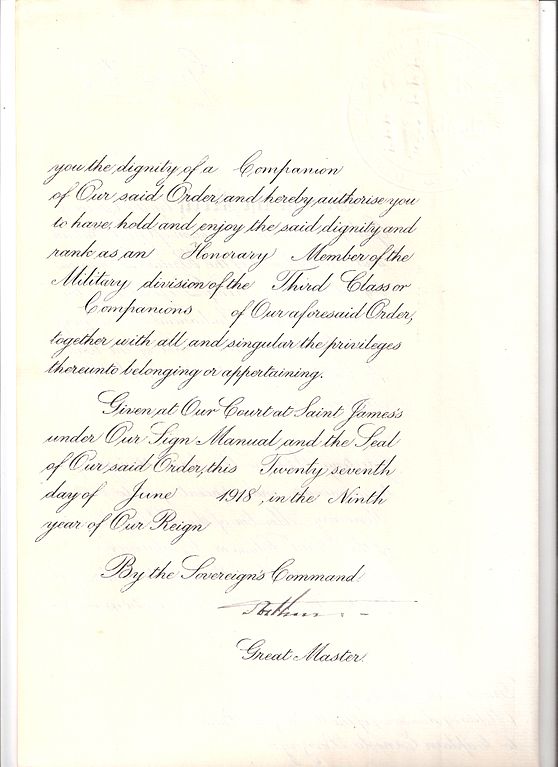 you the dignity of a Companion
of Our said Order, and hereby authorise you
to have, hold and enjoy the said dignity and
rank as an Honorary Member of the
Military division of the Third Class or
Companions of Our aforesaid Order,
together with all and singular the privileges
thereunto belonging or appertaining.
Given at Our Court at Saint James's
under Our Sign Manual and the Seal
of Our said Order, this Twenty seventh
day of June 1918, in the Ninth
year of Our Reign
By the Sovereign's Command
Arthur
Great Master.